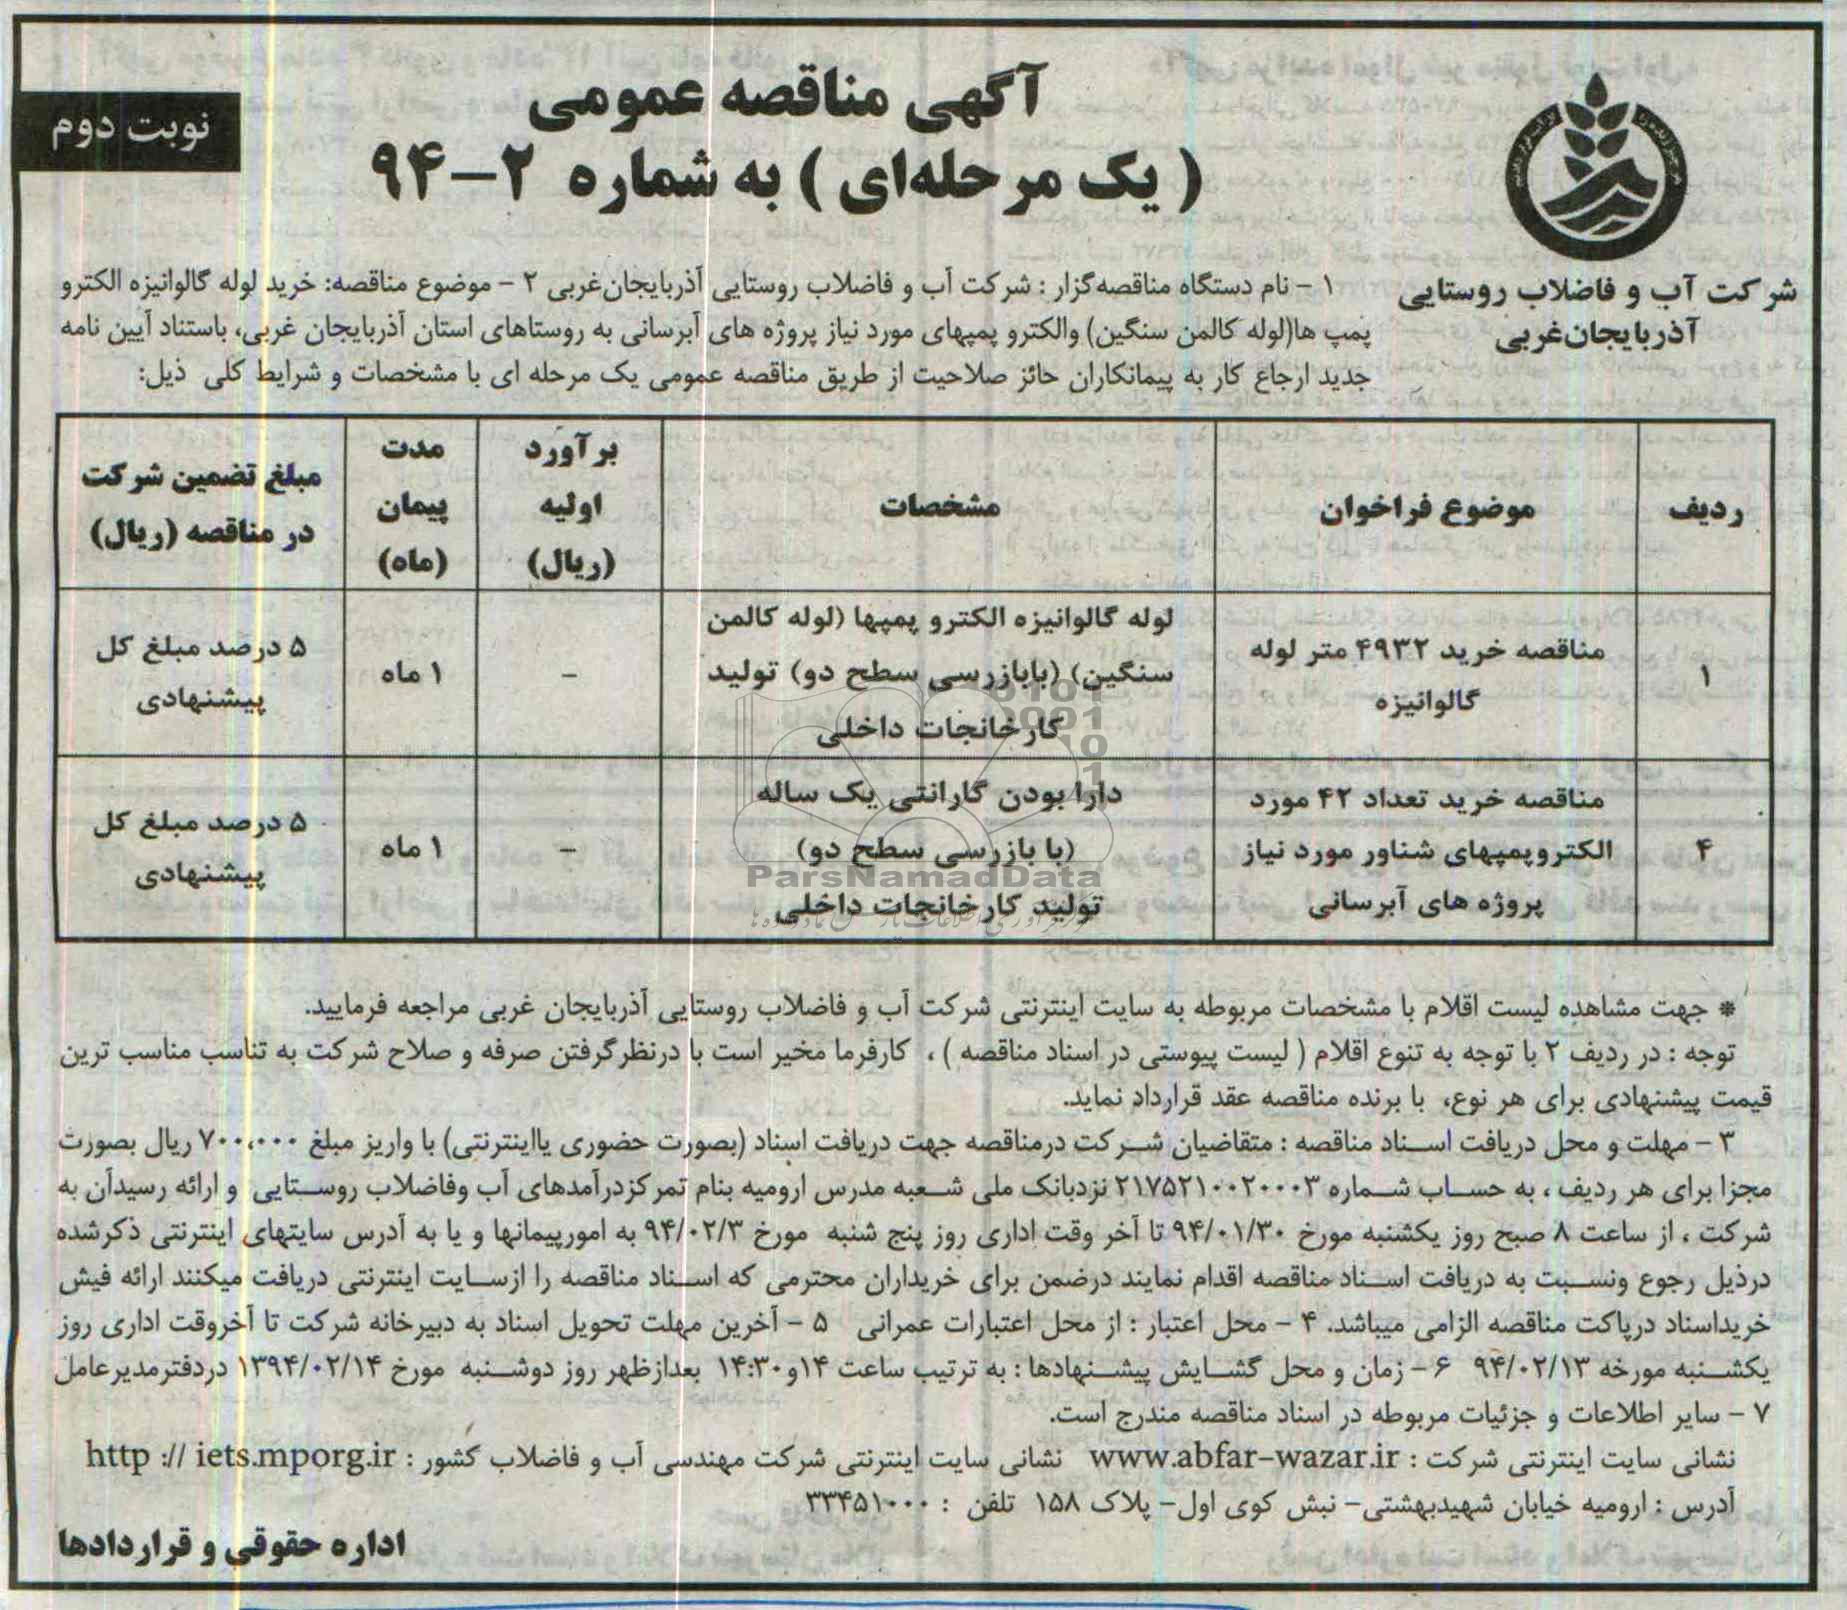 آگهی مناقصه عمومی
( یک مرحله‌ای ) به شماره ۲-۹۴
نوبت دوم
شرکت آب و فاضلاب روستایی
آذربایجان‌غربی
۱ - نام دستگاه مناقصه‌گزار : شرکت آب و فاضلاب روستایی آذربایجان‌غربی ۲ - موضوع مناقصه: خرید لوله گالوانیزه الکترو
پمپ ها(لوله کالمن سنگین) والکترو پمپهای مورد نیاز پروژه های آبرسانی به روستاهای استان آذربایجان غربی، باستناد آیین نامه
جدید ارجاع کار به پیمانکاران حائز صلاحیت از طریق مناقصه عمومی یک مرحله ای با مشخصات و شرایط کلی ذیل:
ردیف
موضوع فراخوان
مشخصات
برآورد
اولیه
(ریال)
مدت
پیمان
(ماه)
مبلغ تضمین شرکت
در مناقصه (ریال)
۱
مناقصه خرید ۴۹۳۲ متر لوله
گالوانیزه
لوله گالوانیزه الکترو پمپها (لوله کالمن
سنگین) (بابازرسی سطح دو) تولید
کارخانجات داخلی
-
۱ ماه
۵ درصد مبلغ کل
پیشنهادی
۴
مناقصه خرید تعداد ۴۲ مورد
الکتروپمپهای شناور مورد نیاز
پروژه های آبرسانی
دارا بودن گارانتی یک ساله
(با بازرسی سطح دو)
تولید کارخانجات داخلی
-
۱ ماه
۵ درصد مبلغ کل
پیشنهادی
ParsNamadData
* جهت مشاهده لیست اقلام با مشخصات مربوطه به سایت اینترنتی شرکت آب و فاضلاب روستایی آذربایجان غربی مراجعه فرمایید.
توجه : در ردیف ۲ با توجه به تنوع اقلام ( لیست پیوستی در اسناد مناقصه ) ، کارفرما مخیر است با درنظرگرفتن صرفه و صلاح شرکت به تناسب مناسب ترین
قیمت پیشنهادی برای هر نوع، با برنده مناقصه عقد قرارداد نماید.
۳ - مهلت و محل دریافت اسناد مناقصه : متقاضیان شرکت درمناقصه جهت دریافت اسناد (بصورت حضوری یااینترنتی) با واریز مبلغ ۷۰۰،۰۰۰ ریال بصورت
مجزا برای هر ردیف ، به حساب شماره ۲۱۷۵۲۱۰۰۲۰۰۰۳ نزدبانک ملی شعبه مدرس ارومیه بنام تمرکزدرآمدهای آب وفاضلاب روستایی و ارائه رسیدآن به
شرکت ، از ساعت ۸ صبح روز یکشنبه مورخ ۹۴/۰۱/۳۰ تا آخر وقت اداری روز پنج شنبه مورخ ۹۴/۰۲/۳ به امورپیمانها و یا به آدرس سایتهای اینترنتی ذکرشده
درذیل رجوع ونسبت به دریافت اسناد مناقصه اقدام نمایند درضمن برای خریداران محترمی که اسناد مناقصه را ازسایت اینترنتی دریافت میکنند ارائه فیش
خریداسناد درپاکت مناقصه الزامی میباشد. ۴ - محل اعتبار : از محل اعتبارات عمرانی ۵ - آخرین مهلت تحویل اسناد به دبیرخانه شرکت تا آخروقت اداری روز
یکشنبه مورخه ۹۴/۰۲/۱۳ ۶ - زمان و محل گشایش پیشنهادها : به ترتیب ساعت ۱۴و۱۴:۳۰ بعدازظهر روز دوشنبه مورخ ۱۳۹۴/۰۲/۱۴ دردفترمدیرعامل
۷ - سایر اطلاعات و جزئیات مربوطه در اسناد مناقصه مندرج است.
نشانی سایت اینترنتی شرکت : www.abfar-wazar.ir نشانی سایت اینترنتی شرکت مهندسی آب و فاضلاب کشور : http :// iets.mporg.ir
آدرس : ارومیه خیابان شهیدبهشتی- نبش کوی اول- پلاک ۱۵۸ تلفن : ۳۳۴۵۱۰۰۰
اداره حقوقی و قراردادها